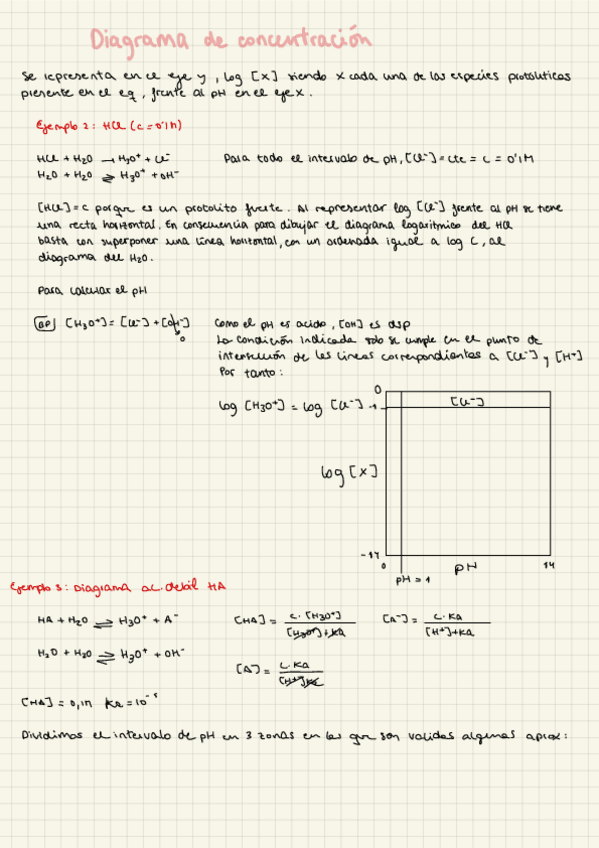 Diagrama de concentración
Se representa en el eje y, log [x] siendo x cada una de las especies protolíticas
presente en el eq, frente al pH en el eje x.
Ejemplo 2: HCl (c=0'1M)
HCl + H2O → H3O+ + Cl-
Para todo el intervalo de pH, [Cl-] = cte = c = 0'1M
H2O + H2O ⇌ H3O+ + OH-
[HCl] = c porque es un protolito fuerte. Al representar log [Cl-] frente al pH se tiene
una recta horizontal. En consecuencia para dibujar el diagrama logarítmico del HCl
basta con superponer una línea horizontal, con un ordenada igual a log C, al
diagrama del H2O.
Para calcular el pH
BP [H3O+] = [Cl-] + [OH-]
0
Como el pH es acido, [OH] es dsp
La condición indicada solo se cumple en el punto de
intersección de las lineas correspondientes a [Cl-] y [H+]
Por tanto:
log [H3O+] = log [Cl-]
0
-1
[Cl-]
log [x]
-14
0
pH
14
pH = 1
Ejemplo 3: Diagrama ac. debil HA
HA + H2O ⇌ H3O+ + A-
[HA] = c. [H3O+] / [H3O+] + Ka
[A-] = c. Ka / [H+] + Ka
H2O + H2O ⇌ H3O+ + OH-
[A] = c. Ka
[HA] = 0,1M Ka = 10-5
Dividimos el intervalo de pH en 3 zonas en las que son validas algunas aprox: